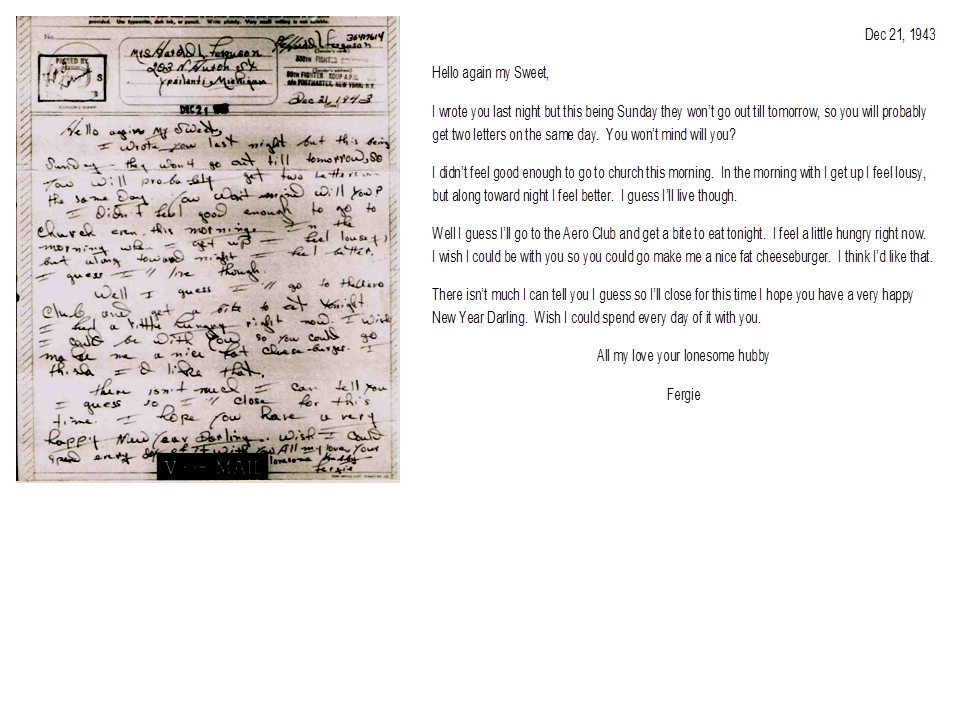 provided. Use typewriter, dark ink, or pencil. Write plainly. Very small writing is not suitable.
No.
Mrs Harold L Ferguson
253 N. Huron St
Ypsilanti, Michigan
Harold L Ferguson 36417614
338TH FIGHTER
55TH FIGHTER GROUP A.P.O.
c/o POSTMASTER, NEW YORK, N.Y.
Dec 21, 1943
PASSED BY
S
(CENSOR'S STAMP)
DEC 21
Hello again My Sweet,
I wrote you last night but this being
Sunday they won't go out till tomorrow, so
you will probably get two letters on
the same day. You won't mind will you?
I didn't feel good enough to go to
church even this morning. In the
morning when I get up I feel lousey,
but along toward night I feel better.
I guess I'll live though.
Well I guess I'll go to the Aero
Club and get a bite to eat tonight.
I feel a little hungry right now. I wish
I could be with you so you could go
make me a nice fat cheese-burger. I
think I'd like that.
there isn't much I can tell you
I guess so I'll close for this
time. I hope you have a very
happy New Year Darling. Wish I could
spend every day of it with you. All my love, your
lonesome hubby
Fergie
V-MAIL
Dec 21, 1943
Hello again my Sweet,
I wrote you last night but this being Sunday they won't go out till tomorrow, so you will probably
get two letters on the same day. You won't mind will you?
I didn't feel good enough to go to church this morning. In the morning with I get up I feel lousy,
but along toward night I feel better. I guess I'll live though.
Well I guess I'll go to the Aero Club and get a bite to eat tonight. I feel a little hungry right now.
I wish I could be with you so you could go make me a nice fat cheeseburger. I think I'd like that.
There isn't much I can tell you I guess so I'll close for this time I hope you have a very happy
New Year Darling. Wish I could spend every day of it with you.
All my love your lonesome hubby
Fergie